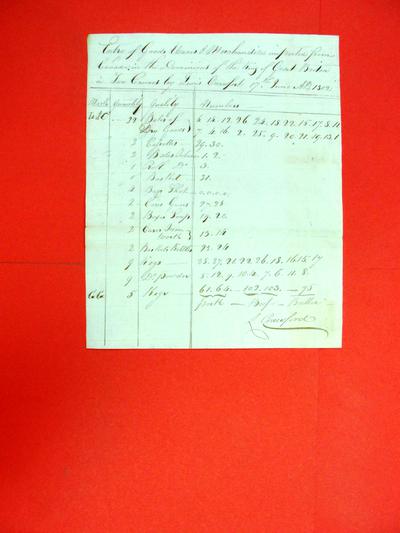 Entry of Goods Wares & Merchandise imported from
Canada in the Dominions of the King of Great Britain
in Two Canoes by Lewis Crawford 17th June AD 1802
Marks Quantity Quality Numbers
22 Bales of
Dry Goods 4. 14. 12. 26. 24. 18. 22. 15. 17. 3. 11
7. 4. 16. 2. 25. 9. 20. 21. 19. 13. 1
2 Cassettes 29. 30.
2 Bales 1. 2.
1 3.
1 Basket 31.
4 Bags Shot 0. 0. 0. 0.
2 Cases Guns 27. 28.
2 Boxes Soap 19. 20.
2 Cases Iron
Work 13. 14
2 Baskets Kettles 23. 24
9 Kegs 25. 27. 21. 22. 26. 18. 16. 15. 17
9 Do Powder 5. 12. 9. 10. 4. 7. 6. 11. 8.
5 Kegs 61. 64. — 102. 103. — 75
Pork — Beef — Butter
L Crawford